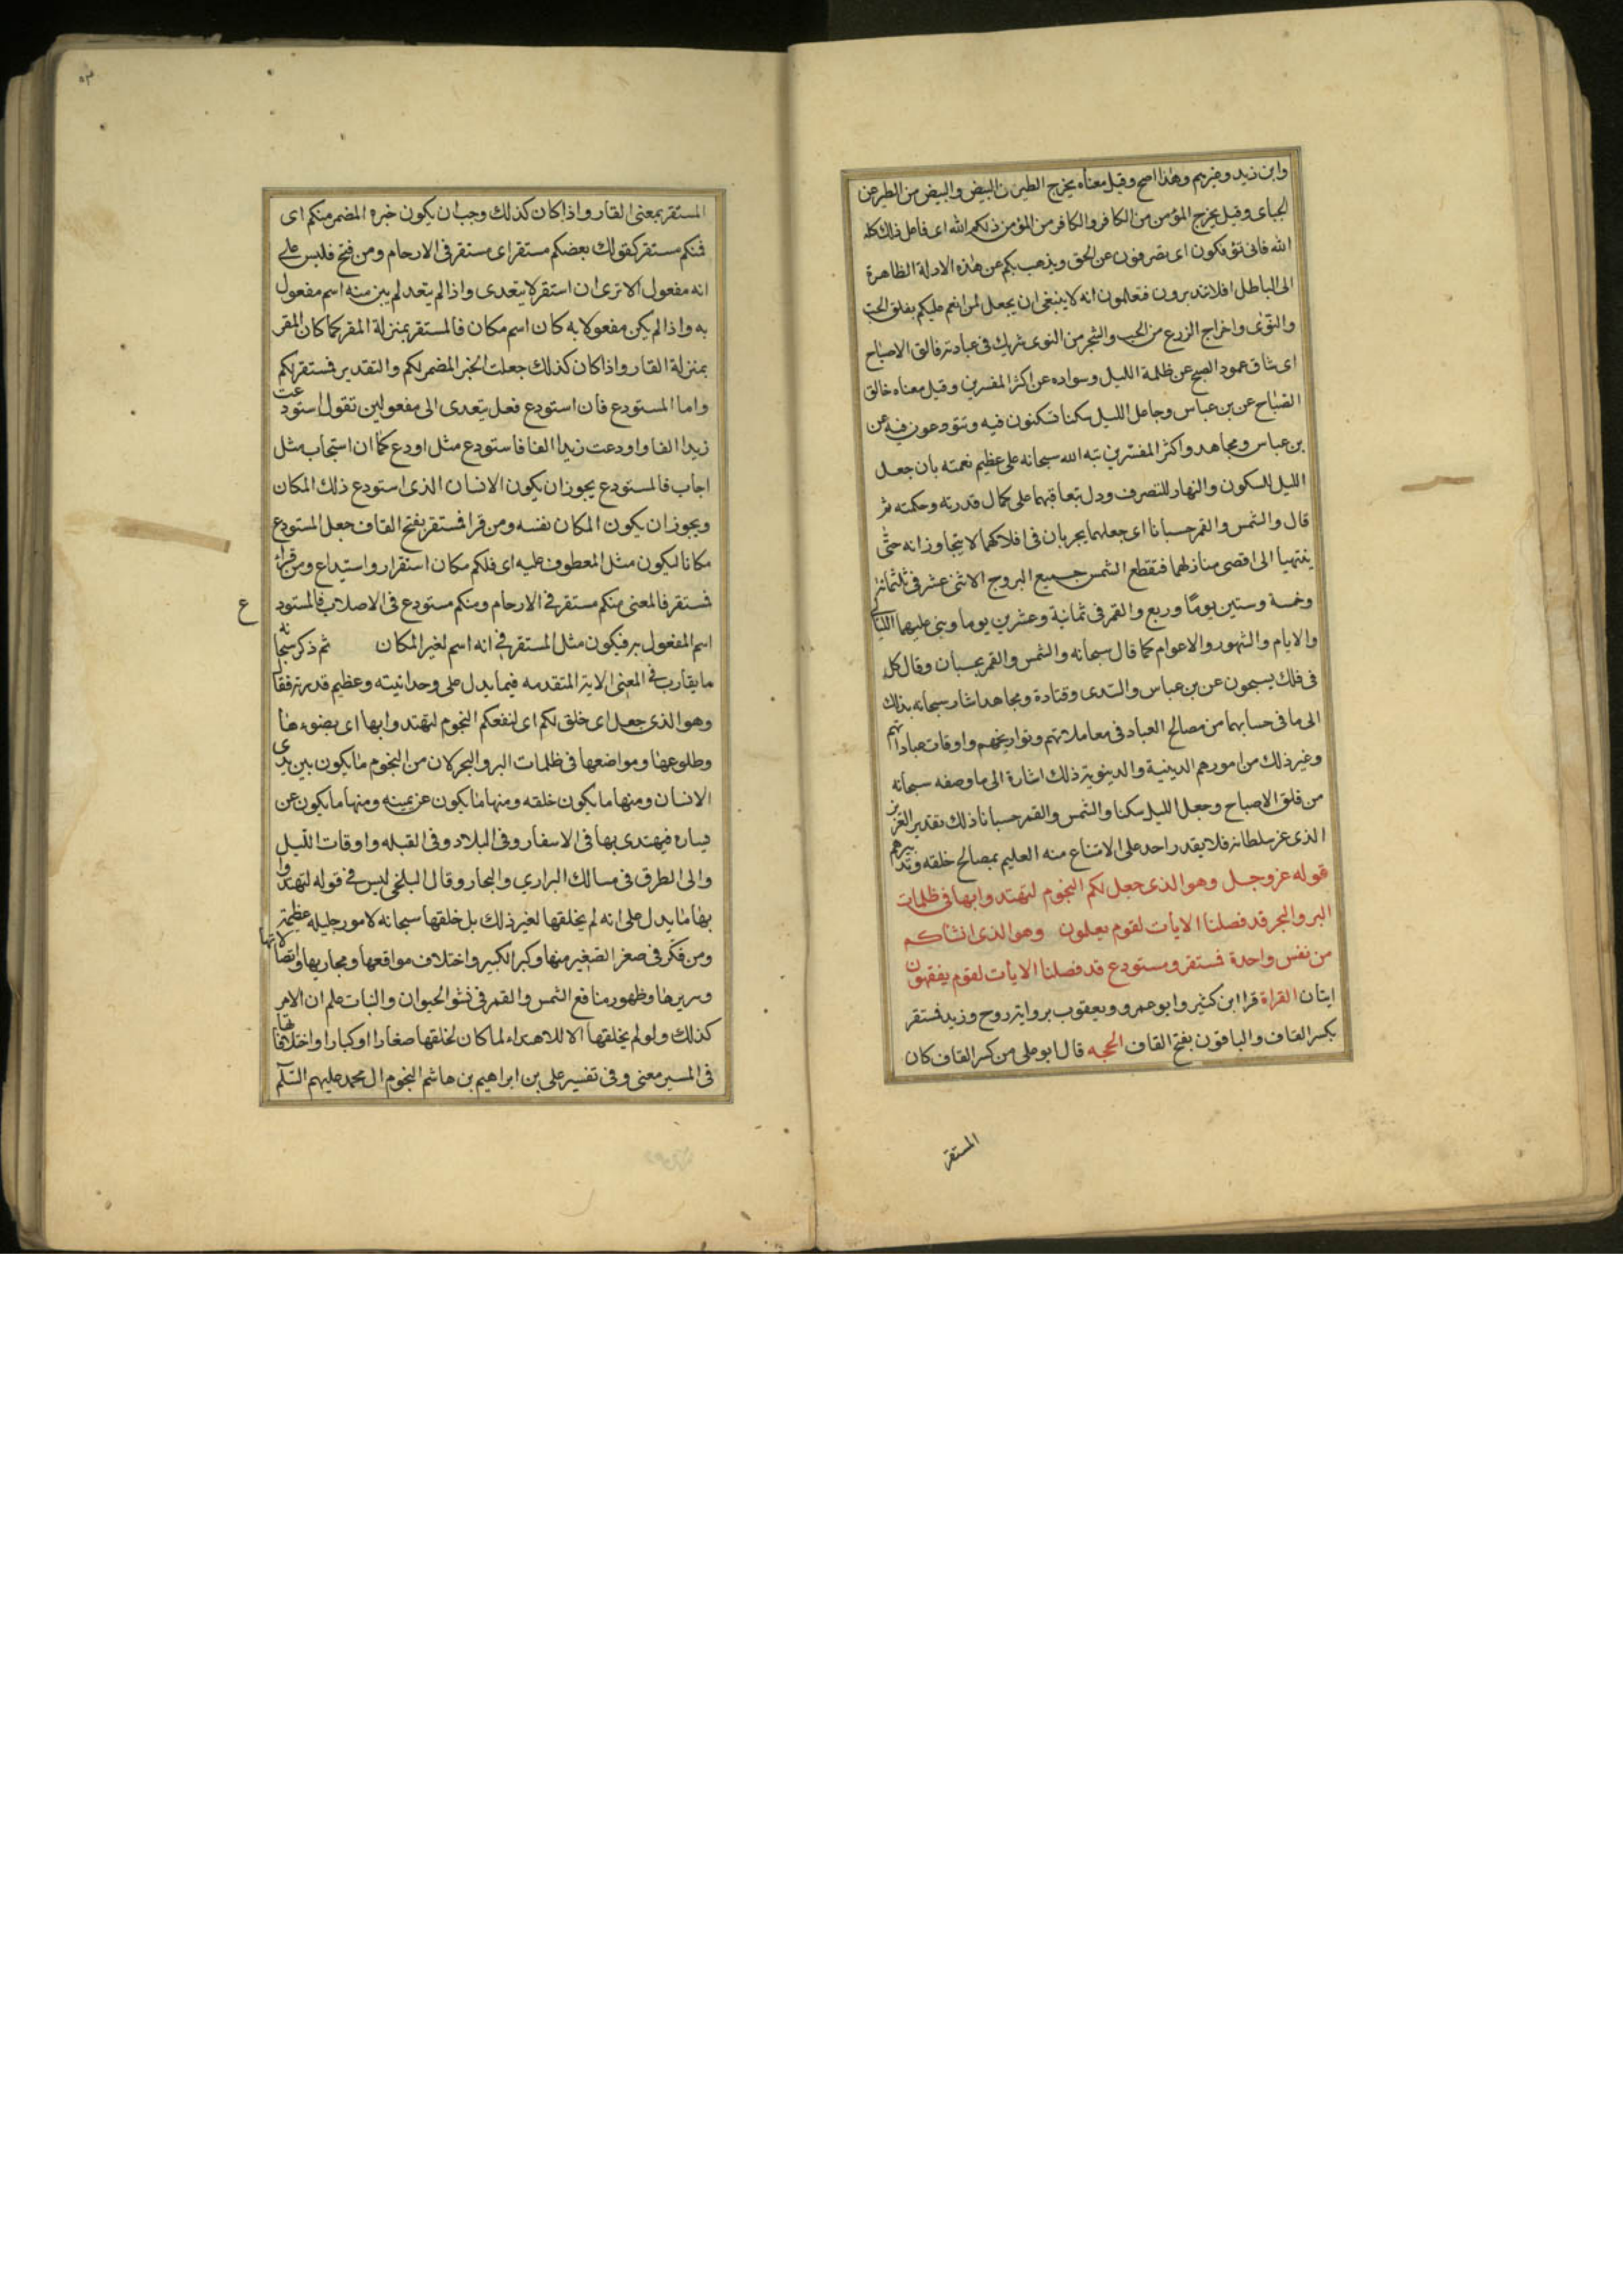 وابن زيد وغيرهم وهذا اصح وقيل معناه يخرج الطير من البيض والبيض من الطير عن
الجباى وقيل يخرج المؤمن من الكافر والكافر من المؤمن ذلكم الله اى فاعل ذلك كله
الله فانى تؤفكون اى تصرفون عن الحق ويذهب بكم عن هذه الادلة الظاهرة
الى الباطل افلا تتدبرون فتعلمون انه لا ينبغى ان يجعل لمن انعم عليكم بفلق الحب
والنوى واخراج الزرع من الحب والشجر من النوى شريك فى عبادته فالق الاصباح
اى شاق عمود الصبح عن ظلمة الليل وسواده عن اكثر المفسرين وقيل معناه خالق
الصباح عن بن عباس وجاعل الليل سكنا تسكنون فيه وتتودعون فيه عن
بن عباس ومجاهد واكثر المفسرين نبه الله سبحانه على عظيم نعمته بان جعل
الليل للسكون والنهار للتصرف ودل بتعاقبهما على كمال قدرته وحكمته ثم
قال والشمس والقمر حسبانا اى جعلهما يجريان فى افلاكهما لا يتجاوزانه حتى
ينتهيا الى اقصى منازلهما فتقطع الشمس جميع البروج الاثنى عشر فى ثلثمائة
وخمسة وستين يوما وربع والقمر فى ثمانية وعشرين يوما وبنى عليها الليالى
والايام والشهور والاعوام كما قال سبحانه والشمس والقمر بحسبان وقال كل
فى فلك يسبحون عن بن عباس والسدى وقتادة ومجاهد اشار سبحانه بذلك
الى ما فى حسابهما من مصالح العباد فى معاملاتهم وتواريخهم واوقات عباداتهم
وغير ذلك من امورهم الدينية والدينوية ذلك اشارة الى ما وصفه سبحانه
من فلق الاصباح وجعل الليل سكنا والشمس والقمر حسبانا ذلك تقدير العزيز
الذى عز سلطانه فلا يقدر احد على الامتناع منه العليم بمصالح خلقه وتدبيرهم
قوله عز وجل وهو الذى جعل لكم النجوم لتهتدوا بها فى ظلمات
البر والبحر قد فصلنا الايات لقوم يعلمون وهو الذى انشاكم
من نفس واحدة فمستقر ومستودع قد فصلنا الايات لقوم يفقهون
ايتان القراة قرا ابن كثير وابو عمرو ويعقوب برواية روح وزيد فمستقر
بكسر القاف والباقون بفتح القاف الحجه قال ابو على من كسر القاف كان
المستقر
المستقر بمعنى القار واذا كان كذلك وجب ان يكون خبره المضمر منكم اى
فمنكم مستقر كقولك بعضكم مستقر اى مستقر فى الارحام ومن فتح فليس على
انه مفعول الا ترى ان استقر لا يتعدى واذا لم يتعد لم يبن منه اسم مفعول
به واذا لم يكن مفعولا به كان اسم مكان فالمستقر بمنزلة المقر كما كان المقر
بمنزلة القار واذا كان كذلك جعلت الخبر المضمر لكم والتقدير فمستقر لكم
واما المستودع فان استودع فعل يتعدى الى مفعولين تقول استودعت
زيدا الفا واودعت زيدا الفا فاستودع مثل اودع كما ان استجاب مثل
اجاب فالمستودع يجوز ان يكون الانسان الذى استودع ذلك المكان
ويجوز ان يكون المكان نفسه ومن قرا فمستقر بفتح القاف جعل المستودع
مكانا ليكون مثل المعطوف عليه اى فلكم مكان استقرار واستيداع ومن قرا
فمستقر فالمعنى منكم مستقر فى الارحام ومنكم مستودع فى الاصلاب فالمستودع
اسم المفعول به فيكون مثل المستقر فى انه اسم لغير المكان ثم ذكر سبحانه
ما يقارب فى المعنى الاية المتقدمه فيما يدل على وحدانيته وعظيم قدرته فقال
وهو الذى جعل اى خلق لكم اى لنفعكم النجوم لتهتدوا بها اى بضوءها
وطلوعها ومواضعها فى ظلمات البر والبحر لان من النجوم ما يكون بين يدى
الانسان ومنها ما يكون خلقه ومنها ما يكون عن يمينه ومنها ما يكون عن
يساره فيهتدى بها فى الاسفار وفى البلاد وفى القبله واوقات الليل
والى الطرق فى مسالك البرارى والبحار وقال البلخى ليس فى قوله لتهتدوا
بها ما يدل على انه لم يخلقها لغير ذلك بل خلقها سبحانه لامور جليله عظيمة
ومن فكر فى صغر الصغير منها وكبر الكبير واختلاف مواقعها ومجاريها واتصالاتها
وسيرها وظهور منافع الشمس والقمر فى نشو الحيوان والنبات علم ان الامر
كذلك ولو لم يخلقها الا للاهتداء لما كان لخلقها صغارا او كبارا واختلافها
فى المسير معنى وفى تفسير على بن ابراهيم بن هاشم النجوم ال محمد عليهم السلم